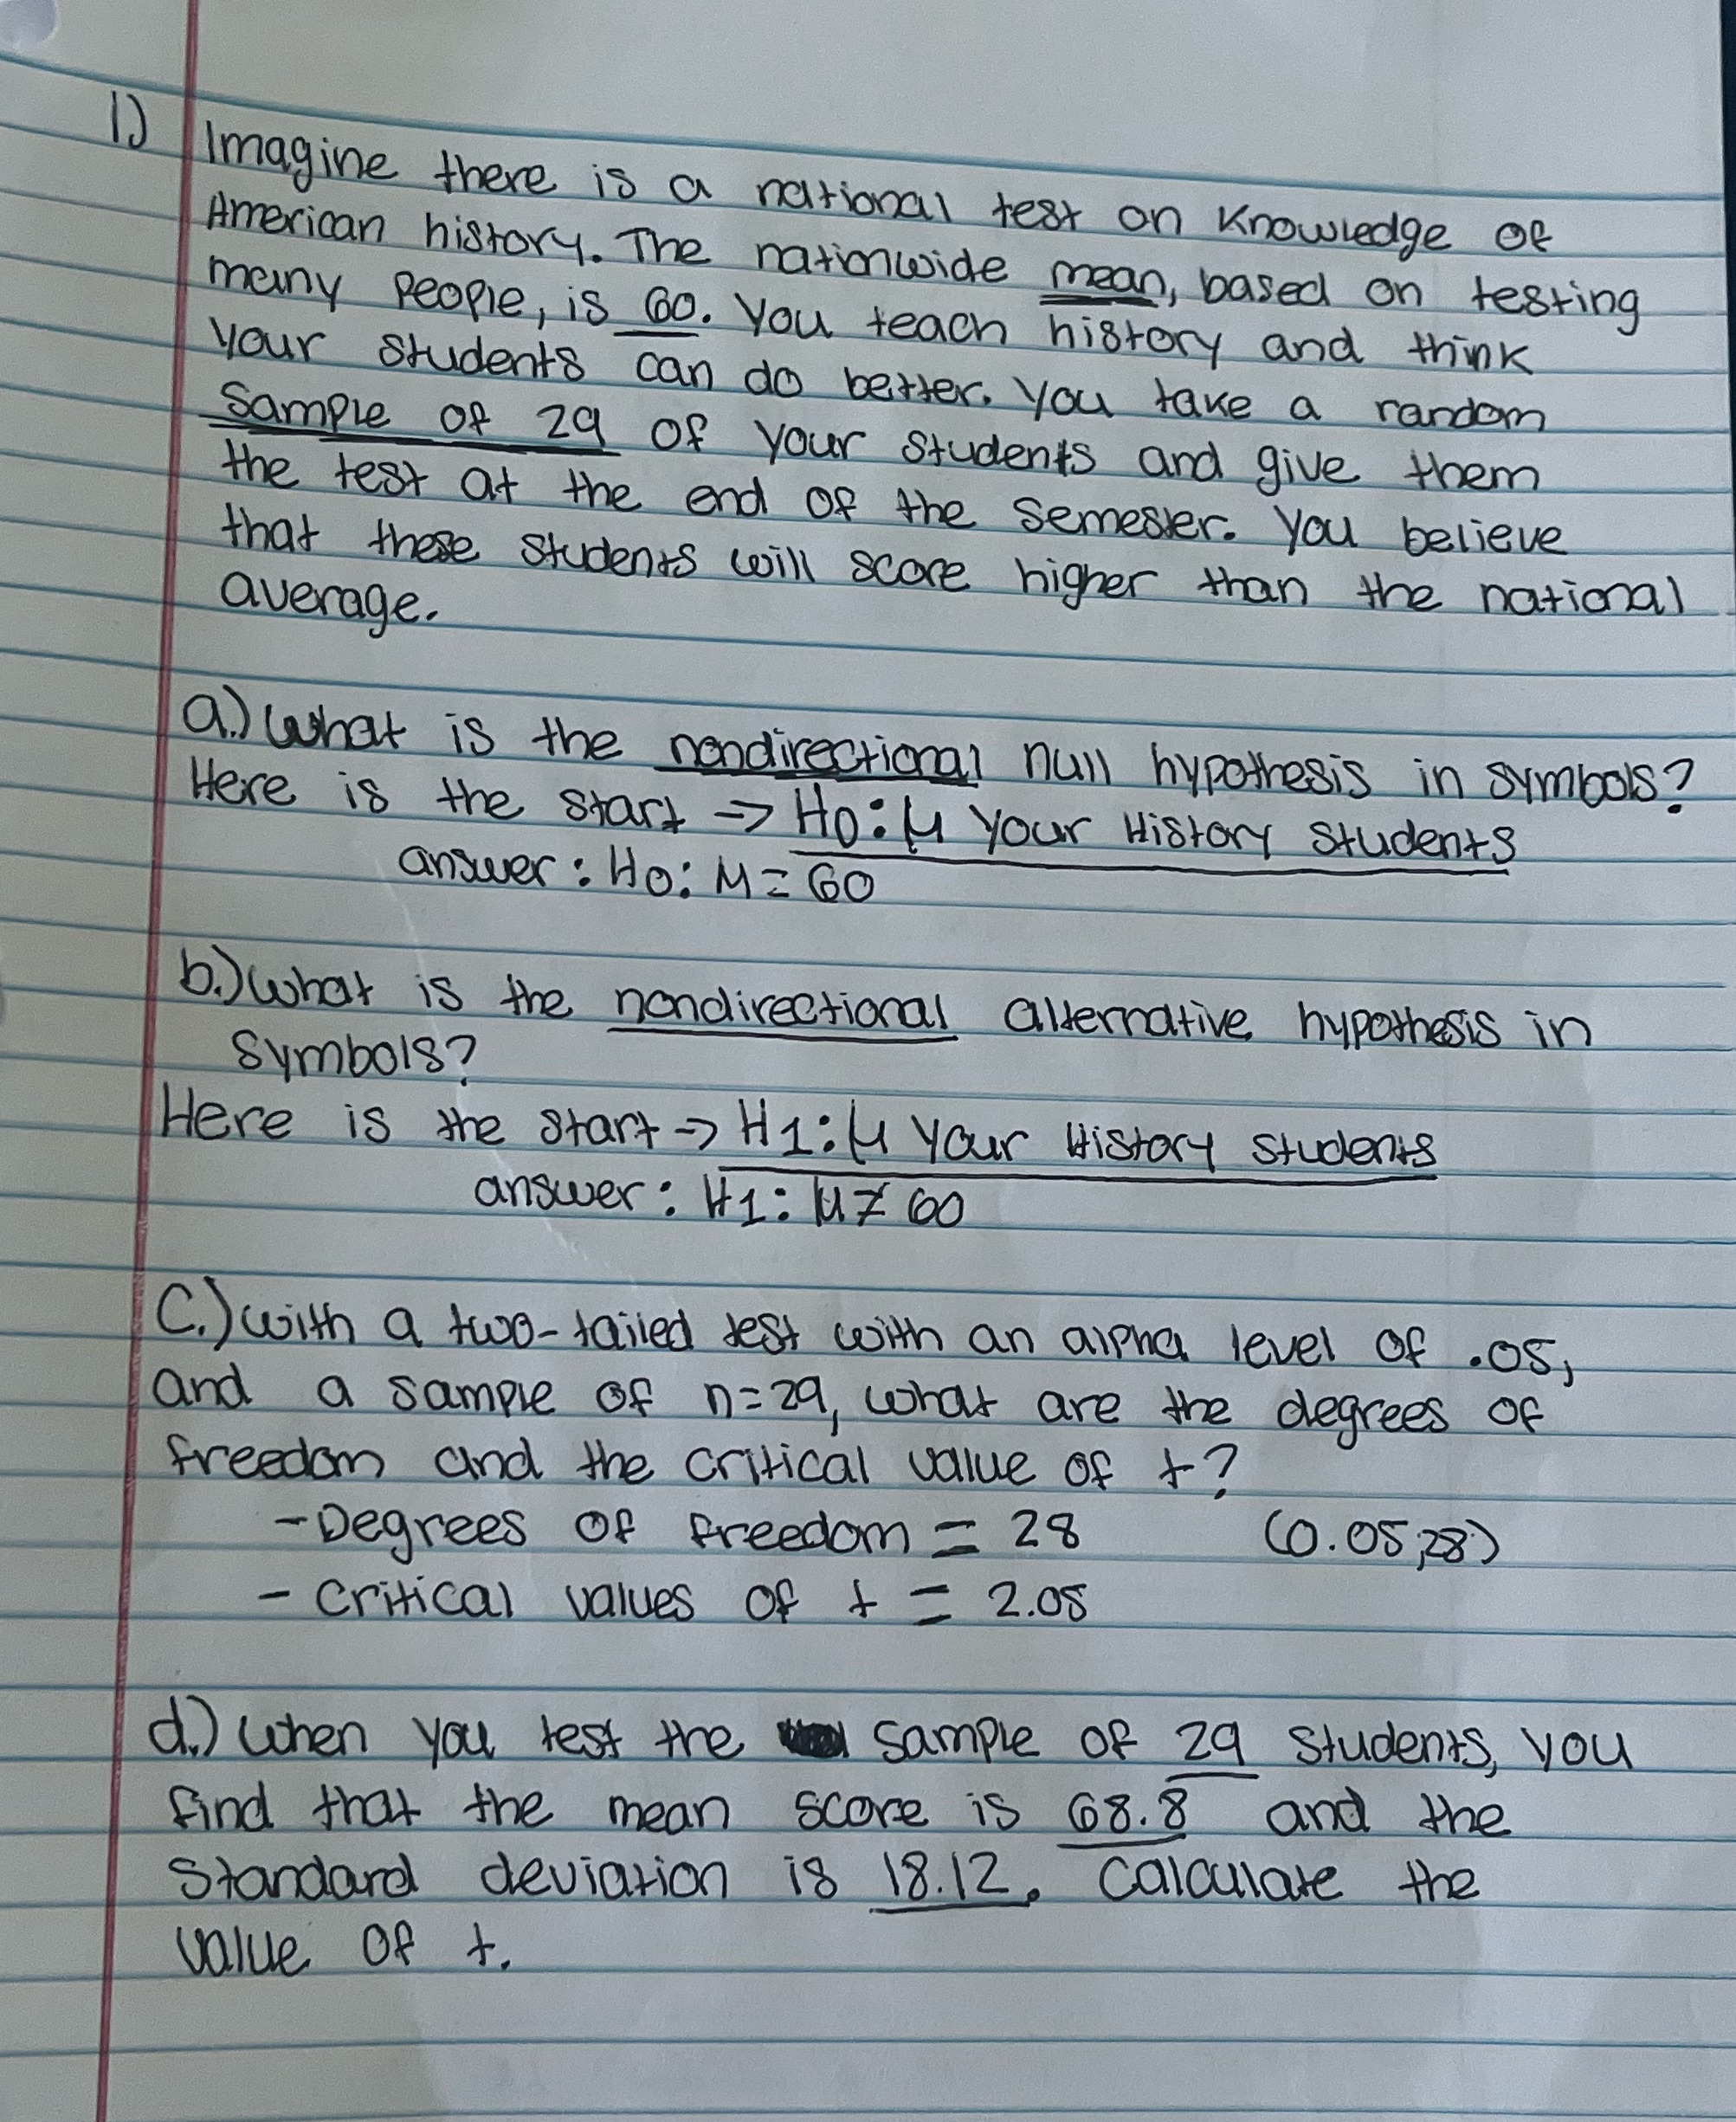 1) Imagine there is a national test on knowledge of
American history. The nationwide mean, based on testing
many people, is 60. You teach history and think
your students can do better. You take a random
sample of 29 of your students and give them
the test at the end of the semester. You believe
that these students will score higher than the national
average.
a.) What is the nondirectional null hypothesis in symbols?
Here is the start → H0: μ Your History Students
answer: H0: M = 60
b.) What is the nondirectional alternative hypothesis in
symbols?
Here is the start → H1: μ Your History Students
answer: H1: μ ≠ 60
C.) With a two-tailed test with an alpha level of .05,
and a sample of n=29, what are the degrees of
freedom and the critical value of t?
- Degrees of freedom = 28 (0.05,28)
- Critical values of t = 2.05
d.) When you test the sample of 29 students, you
find that the mean score is 68.8 and the
standard deviation is 18.12. Calculate the
value of t.